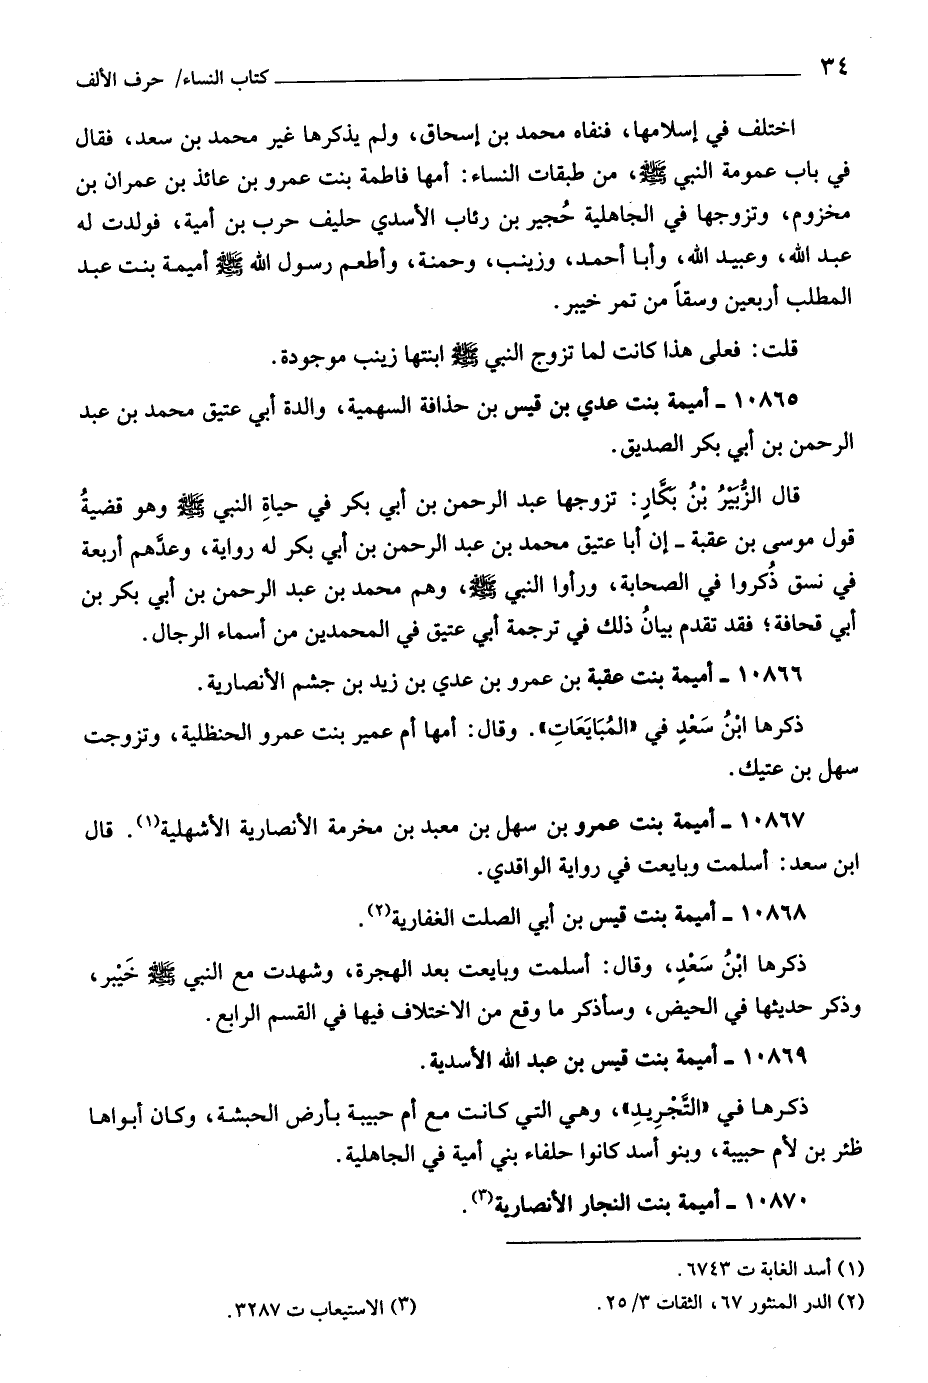 ٣٤ كتاب النساء/ حرف الألف
اختلف في إسلامها، فنفاه محمد بن إسحاق، ولم يذكرها غير محمد بن سعد، فقال
في باب عمومة النبي ﷺ، من طبقات النساء: أمها فاطمة بنت عمرو بن عائذ بن عمران بن
مخزوم، وتزوجها في الجاهلية حُجير بن رئاب الأسدي حليف حرب بن أمية، فولدت له
عبد الله، وعبيد الله، وأبا أحمد، وزينب، وحمنة، وأطعم رسول الله ﷺ أميمة بنت عبد
المطلب أربعين وسقاً من تمر خيبر.
قلت: فعلى هذا كانت لما تزوج النبي ﷺ ابنتها زينب موجودة.
١٠٨٦٥ - أميمة بنت عدي بن قيس بن حذافة السهمية، والدة أبي عتيق محمد بن عبد
الرحمن بن أبي بكر الصديق.
قال الزُّبَيْرُ بْنُ بَكَّارٍ: تزوجها عبد الرحمن بن أبي بكر في حياةِ النبي ﷺ وهو قضيةُ
قول موسى بن عقبة - إن أبا عتيق محمد بن عبد الرحمن بن أبي بكر له رواية، وعدَّهم أربعة
في نسق ذُكروا في الصحابة، ورأوا النبي ﷺ، وهم محمد بن عبد الرحمن بن أبي بكر بن
أبي قحافة؛ فقد تقدم بيانُ ذلك في ترجمة أبي عتيق في المحمدين من أسماء الرجال.
١٠٨٦٦ - أميمة بنت عقبة بن عمرو بن عدي بن زيد بن جشم الأنصارية.
ذكرها ابْنُ سَعْدٍ في «المُبَايَعَاتِ». وقال: أمها أم عمير بنت عمرو الحنظلية، وتزوجت
سهل بن عتيك.
١٠٨٦٧ - أميمة بنت عمرو بن سهل بن معبد بن مخرمة الأنصارية الأشهلية(١). قال
ابن سعد: أسلمت وبايعت في رواية الواقدي.
١٠٨٦٨ - أميمة بنت قيس بن أبي الصلت الغفارية(٢).
ذكرها ابْنُ سَعْدٍ، وقال: أسلمت وبايعت بعد الهجرة، وشهدت مع النبي ﷺ خَيْبر،
وذكر حديثها في الحيض، وسأذكر ما وقع من الاختلاف فيها في القسم الرابع.
١٠٨٦٩ - أميمة بنت قيس بن عبد الله الأسدية.
ذكرها في «التَّجْرِيدِ»، وهي التي كانت مع أم حبيبة بأرض الحبشة، وكان أبواها
ظئر بن لأم حبيبة، وبنو أسد كانوا حلفاء بني أمية في الجاهلية.
١٠٨٧٠ - أميمة بنت النجار الأنصارية(٣).
(١) أسد الغابة ت ٦٧٤٣.
(٢) الدر المنثور ٦٧، الثقات ٣/ ٢٥. (٣) الاستيعاب ت ٣٢٨٧.